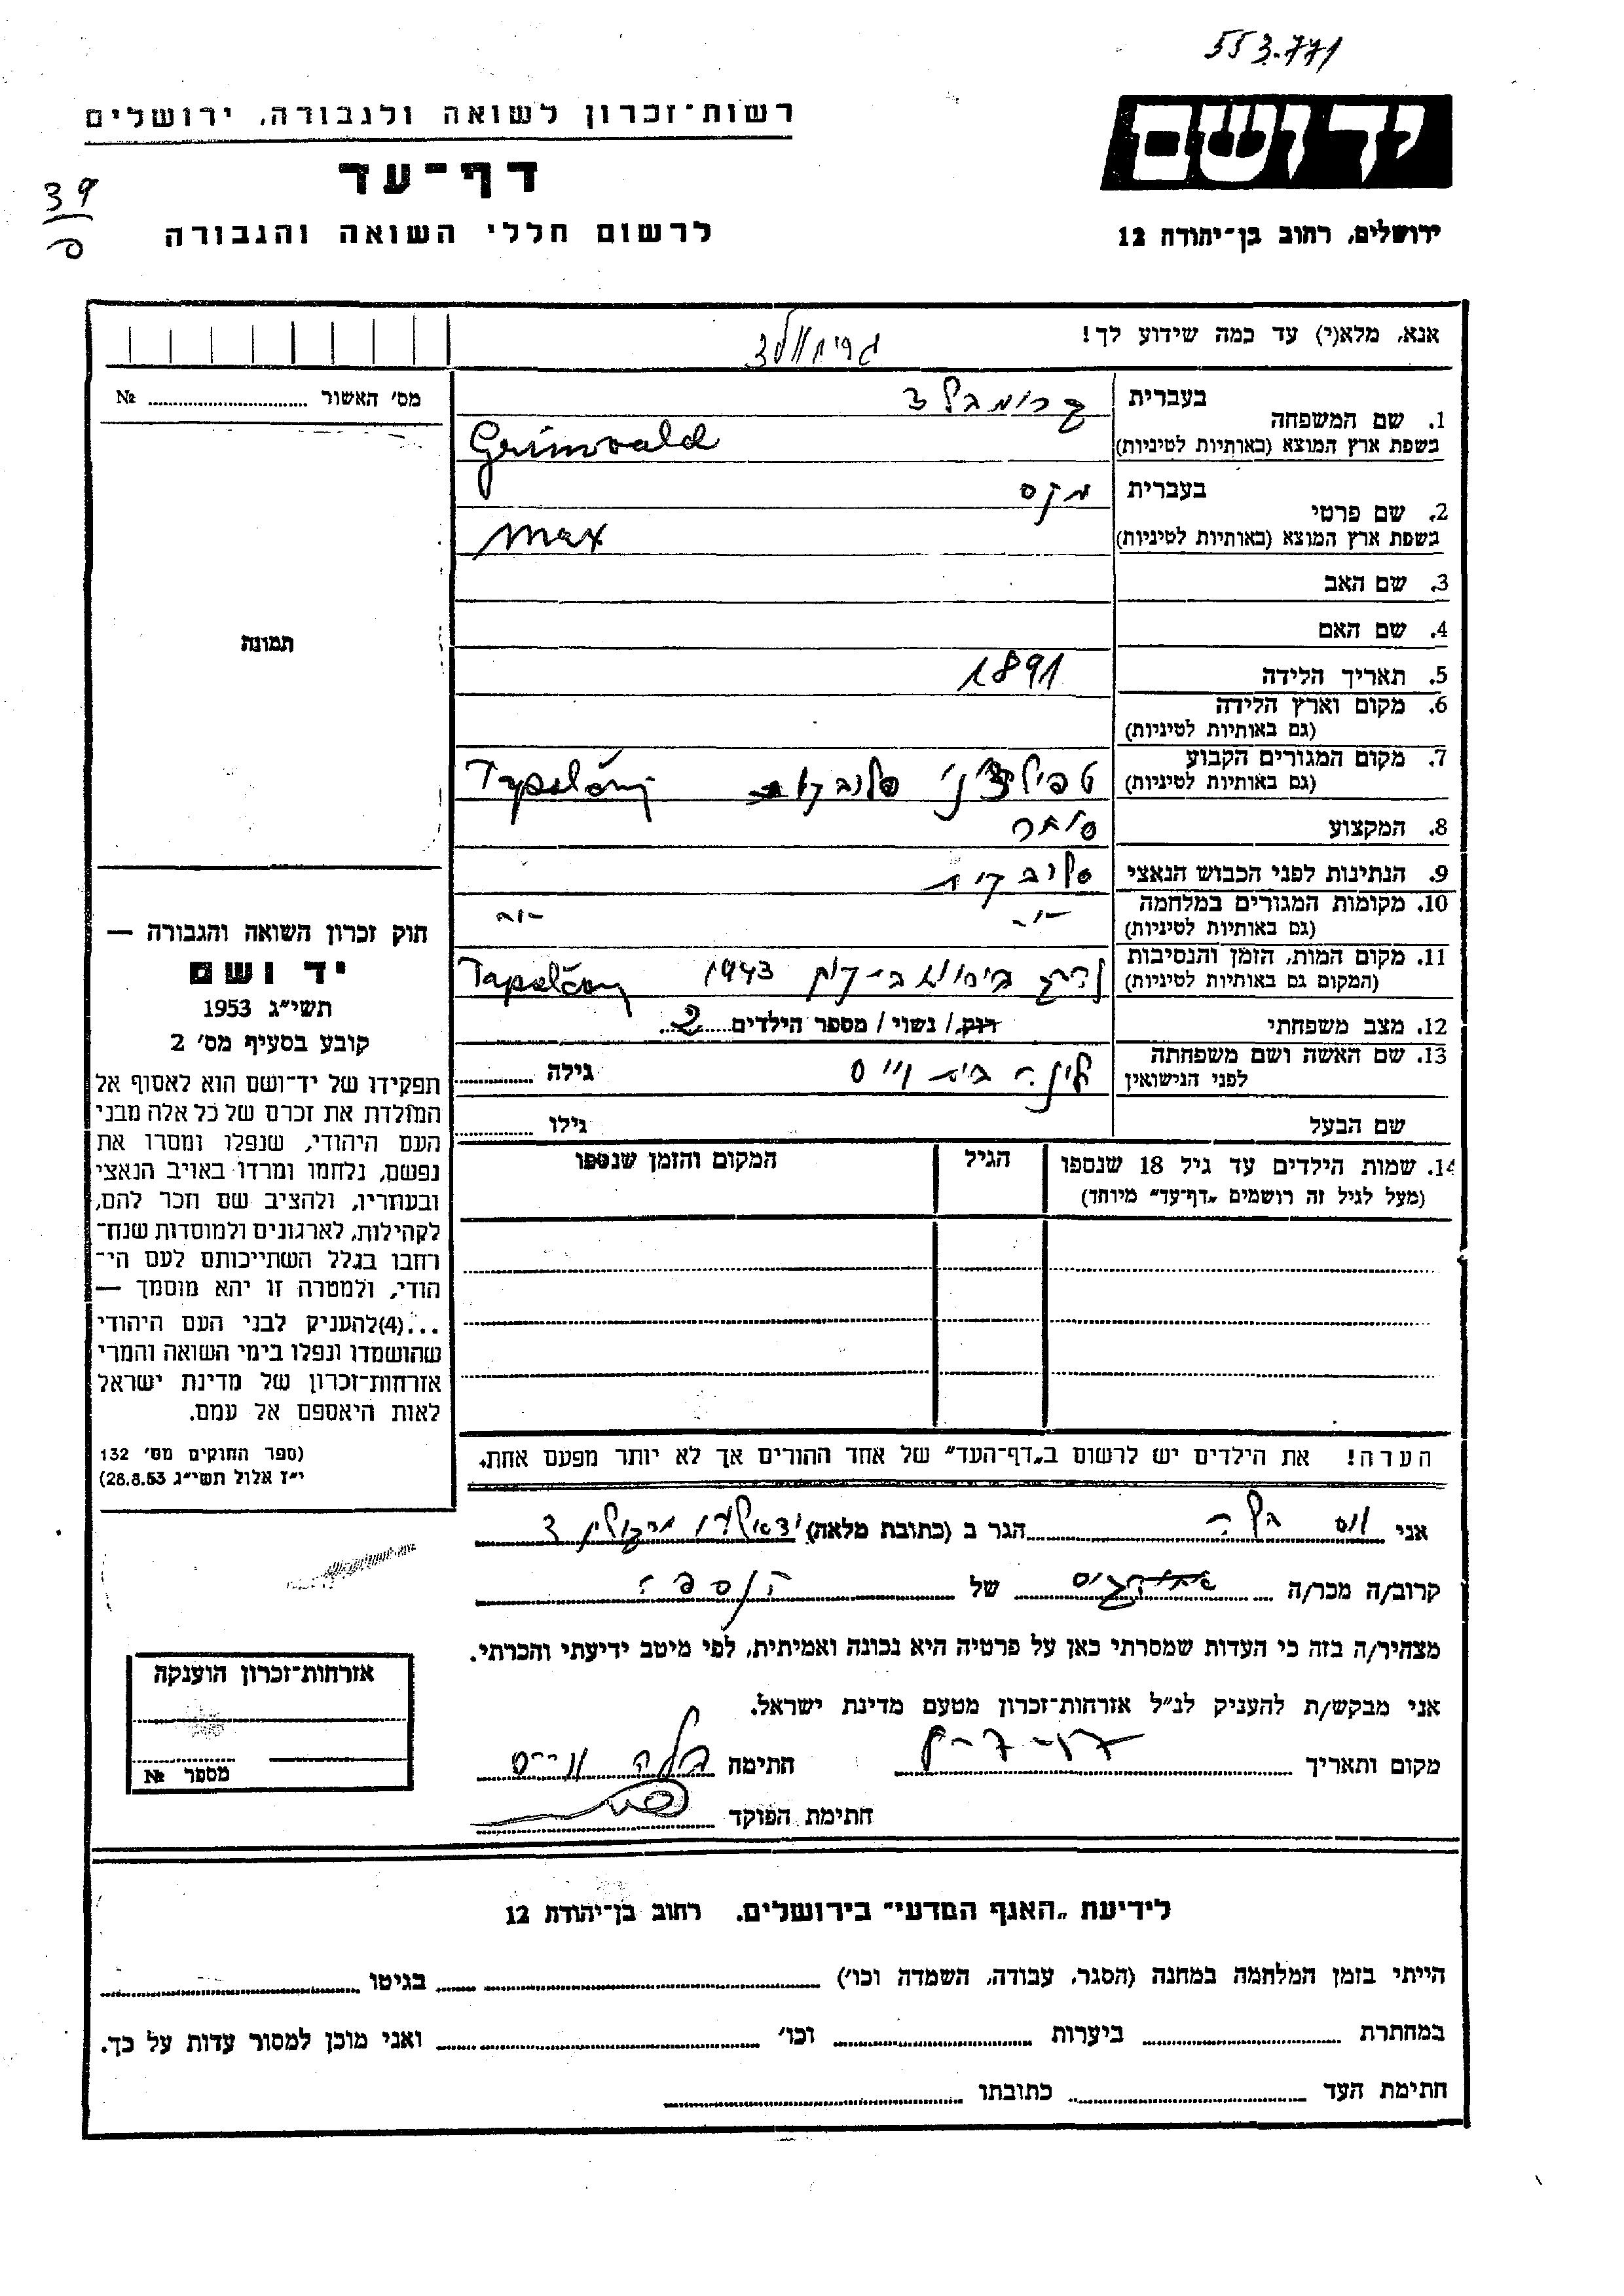 553.771
ידושם
רשות-זכרון לשואה ולגבורה, ירושלים
דף-עד
39
לרשום חללי השואה והגבורה
ירושלים, רחוב בן-יהודה 12
אנא, מלא(י) עד כמה שידוע לך!
גרינוולד
מס׳ האשור № 
בעברית
1. שם המשפחה
בשפת ארץ המוצא (באותיות לטיניות) Grünwald
בעברית מקס
2. שם פרטי
בשפת ארץ המוצא (באותיות לטיניות) Max
3. שם האב
4. שם האם
תמונה
5. תאריך הלידה 1891
6. מקום וארץ הלידה
(גם באותיות לטיניות)
7. מקום המגורים הקבוע
(גם באותיות לטיניות)
8. המקצוע סוחר
9. הנתינות לפני הכבוש הנאצי סלובקית
10. מקומות המגורים במלחמה -"-
(גם באותיות לטיניות)
11. מקום המות, הזמן והנסיבות 1943
(המקום גם באותיות לטיניות)
12. מצב משפחתי רווק/ נשוי/ מספר הילדים 2
13. שם האשה ושם משפחתה בית וייס גילה
לפני הנישואין
שם הבעל גילו
14. שמות הילדים עד גיל 18 שנספו הגיל המקום והזמן שנספו
(מעל לגיל זה רושמים „דף-עד״ מיוחד)
חוק זכרון השואה והגבורה —
יד ושם
תשי״ג 1953
קובע בסעיף מס׳ 2
תפקידו של יד-ושם הוא לאסוף אל
המולדת את זכרם של כל אלה מבני
העם היהודי, שנפלו ומסרו את
נפשם, נלחמו ומרדו באויב הנאצי
ובעוזריו, ולהציב שם וזכר להם,
לקהילות, לארגונים ולמוסדות שנח-
רחבו בגלל השתייכותם לעם הי-
הודי, ולמטרה זו יהא מוסמך —
...(4)להעניק לבני העם היהודי
שהושמדו ונפלו בימי השואה והמרי
אזרחות-זכרון של מדינת ישראל
לאות היאספם אל עמם.
(ספר החוקים מס׳ 132
י״ז אלול תשי״ג 28.8.53)
הערה! את הילדים יש לרשום ב„דף-העד״ של אחד ההורים אך לא יותר מפעם אחת.
אני וייס בלה הגר ב (כתובת מלאה)
קרוב/ה מכר/ה של הנספה
מצהיר/ה בזה כי העדות שמסרתי כאן על פרטיה היא נכונה ואמיתית, לפי מיטב ידיעתי והכרתי.
אני מבקש/ת להעניק לנ״ל אזרחות-זכרון מטעם מדינת ישראל.
מקום ותאריך חתימה בלה וייס
חתימת הפוקד
אזרחות-זכרון הוענקה
מספר №
לידיעת „האגף המדעי״ בירושלים. רחוב בן-יהודה 12
הייתי בזמן המלחמה במחנה (הסגר, עבודה, השמדה וכו׳) בגיטו
במחתרת ביערות וכו׳ ואני מוכן למסור עדות על כך.
חתימת העד כתובתו